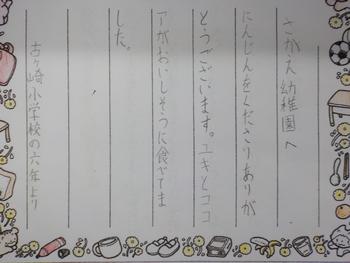 さかえ幼稚園へ
にんじんをくださりありが
とうございます。ユキとココ
アがおいしそうに食べてま
した。
古ヶ崎小学校の六年より